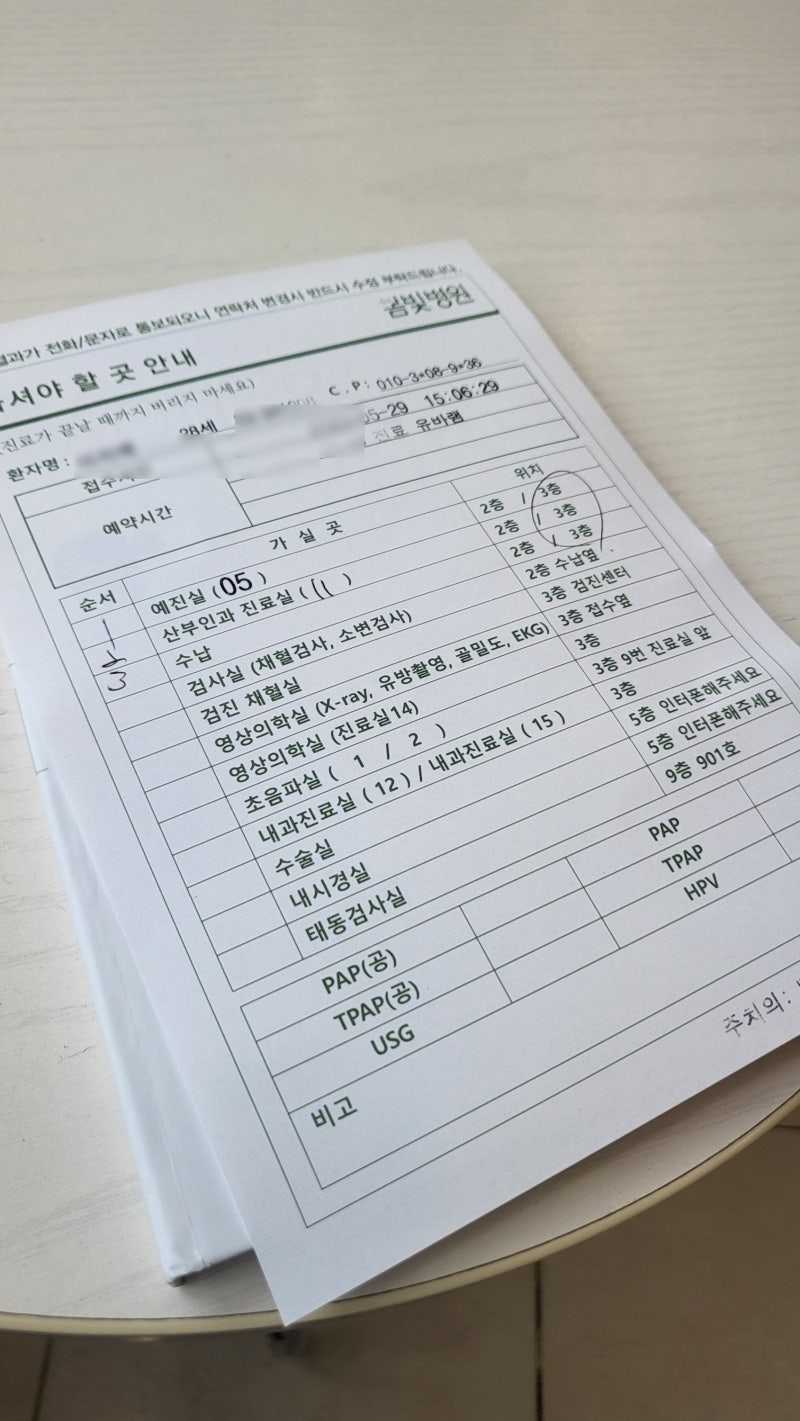 결과가 전화/문자로 통보되오니 연락처 변경시 반드시 수정 부탁드립니다.
가셔야 할 곳 안내 봄빛병원
(진료가 끝날 때까지 버리지 마세요)
환자명 : 28세 C.P: 010-3*08-9*36
05-29 15:06:29
진료 유바램
예약시간
순서 가 실 곳 위치
1 예진실 (05) 2층 / 3층
2 산부인과 진료실 ( 11 ) 2층 / 3층
3 수납 2층 / 3층
검사실 (채혈검사, 소변검사) 2층 수납옆
검진 채혈실 3층 검진센터
영상의학실 (X-ray, 유방촬영, 골밀도, EKG) 3층 접수옆
영상의학실 (진료실14) 3층
초음파실 ( 1 / 2 ) 3층 9번 진료실 앞
내과진료실 ( 12 ) / 내과진료실 ( 15 ) 3층
수술실 5층 인터폰해주세요
내시경실 5층 인터폰해주세요
태동검사실 9층 901호
PAP(공) PAP
TPAP(공) TPAP
USG HPV
비고
주치의: